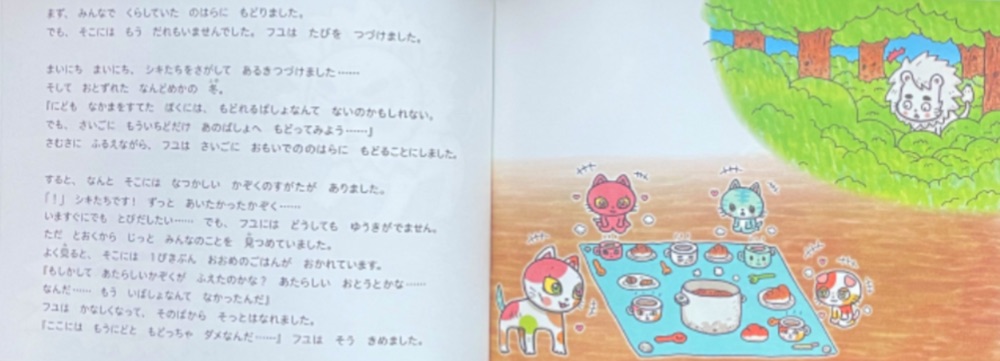 まず、みんなで くらしていた のはらに もどりました。
でも、そこには もう だれもいませんでした。フユは たびを つづけました。
まいにち まいにち、シキたちをさがして あるきつづけました……
そして おとずれた なんどめかの 冬。
『にども なかまをすてた ぼくには、もどれるばしょなんて ないのかもしれない。
でも、さいごに もういちどだけ あのばしょへ もどってみよう……』
さむさに ふるえながら、フユは さいごに おもいでののはらに もどることにしました。
すると、なんと そこには なつかしい かぞくのすがたが ありました。
「！」 シキたちです！ ずっと あいたかったかぞく……
いますぐにでも とびだしたい…… でも、フユには どうしても ゆうきがでません。
ただ とおくから じっと みんなのことを 見つめていました。
よく見ると、そこには 1ぴきぶん おおめのごはんが おかれています。
『もしかして あたらしいかぞくが ふえたのかな？ あたらしい おとうとかな……
なんだ…… もう いばしょなんて なかったんだ』
フユは かなしくなって、そのばから そっとはなれました。
『ここには もうにどと もどっちゃ ダメなんだ……』 フユは そう きめました。